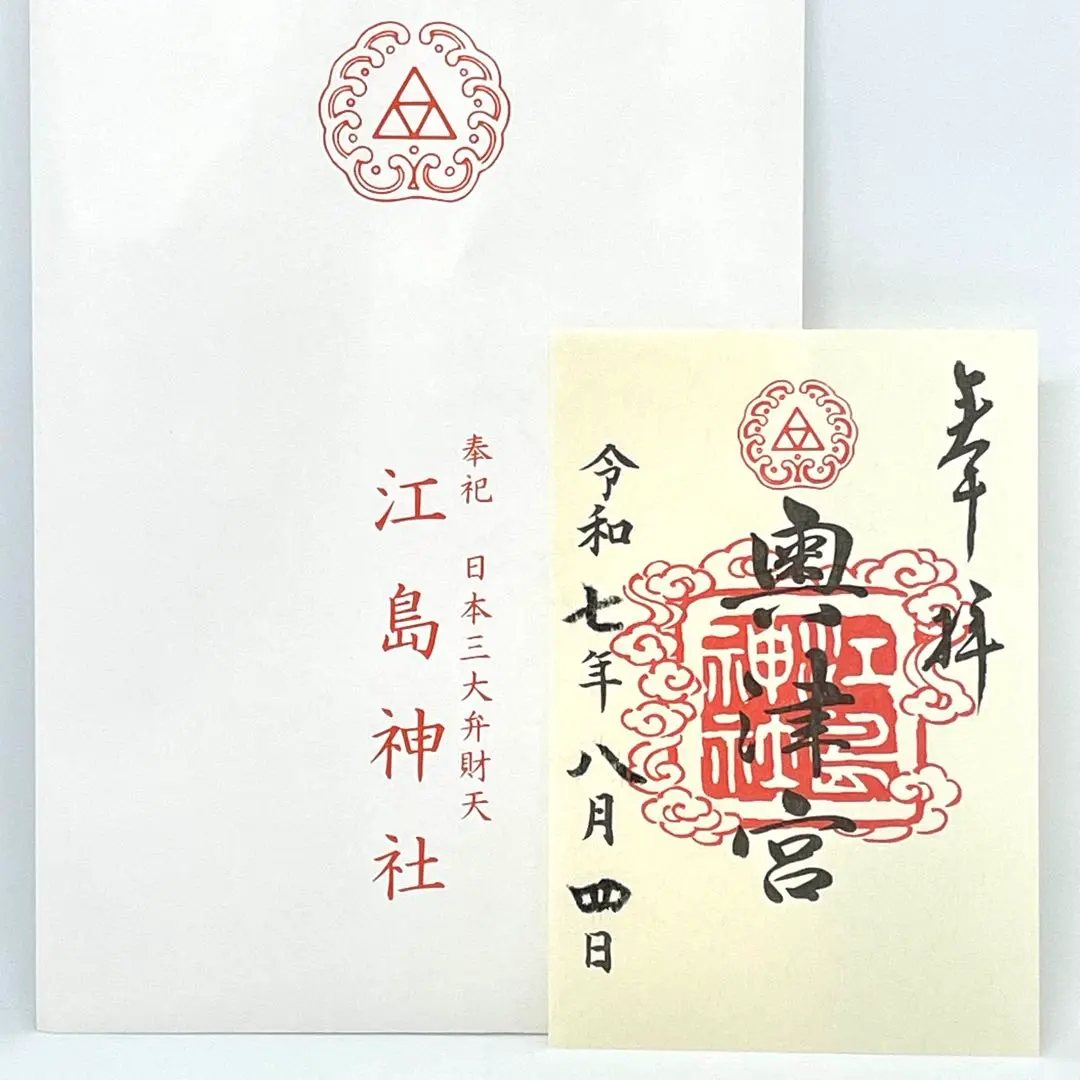 奉祀 日本三大弁財天
江島神社
奉拝
奥津宮
江島神社
令和七年八月四日